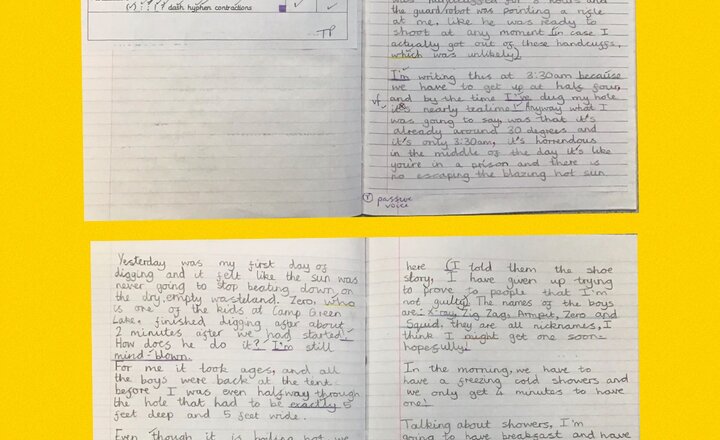 (;) : ; ' dash hyphen contractions
TP
was handcuffed for 8 hours and
the guard/robot was pointing a rifle
at me, like he was ready to
shoot at any moment (in case I
actually got out of these handcuffs,
which was unlikely).
I'm writing this at 3:30am because
we have to get up at half four,
vf and by the time I've dug my hole
it's nearly teatime! Anyway what I
was going to say, was that it's
already around 30 degrees and
it's only 3:30am, it's horrendous
in the middle of the day it's like
you're in a prison and there is
no escaping the blazing hot sun.
passive
voice
Yesterday was my first day of
digging and it felt like the sun was
never going to stop beating down, on
the dry, empty wasteland. Zero, who
is one of the kids at Camp Green
Lake, finished digging after about
2 minutes after we had started!
How does he do it? I'm still
mind-blown.
For me it took ages, and all
the boys were back at the tent
before I was even halfway through
the hole that had to be exactly 5
feet deep and 5 feet wide.
Even though it is boiling hot we
here (I told them the shoe
story, I have given up trying
to prove to people that I'm
not guilty). The names of the boys
are: X-ray, Zig Zag, Armpit, Zero and
Squid, they are all nicknames, I
think I might get one soon-
hopefully!
In the morning, we have to
have a freezing cold showers and
we only get 4 minutes to have
one!
Talking about showers, I'm
going to have breakfast and have